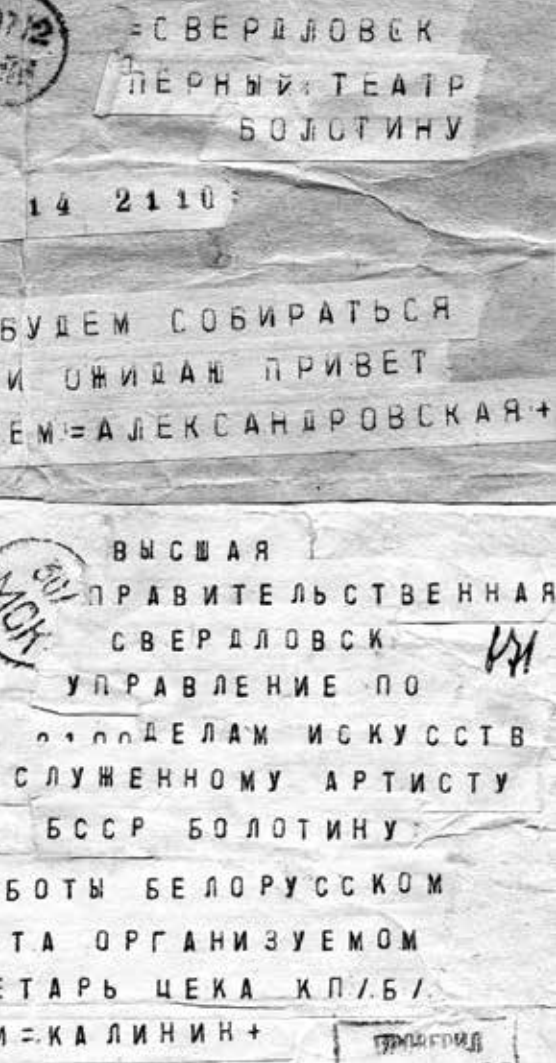 =СВЕРДЛОВСК
ПЕРНЫЙ ТЕАТР
БОЛОТИНУ
14 2110
БУДЕМ СОБИРАТЬСЯ
И ОЖИДАЮ ПРИВЕТ
ЕМ=АЛЕКСАНДРОВСКАЯ+
ВЫСШАЯ
МОК
ПРАВИТЕЛЬСТВЕННАЯ
СВЕРДЛОВСК
УПРАВЛЕНИЕ ПО
ДЕЛАМ ИСКУССТВ
СЛУЖЕННОМУ АРТИСТУ
БССР БОЛОТИНУ
БОТЫ БЕЛОРУССКОМ
ТА ОРГАНИЗУЕМОМ
ЕТАРЬ ЦЕКА КП/.Б/.
=КАЛИНИН+